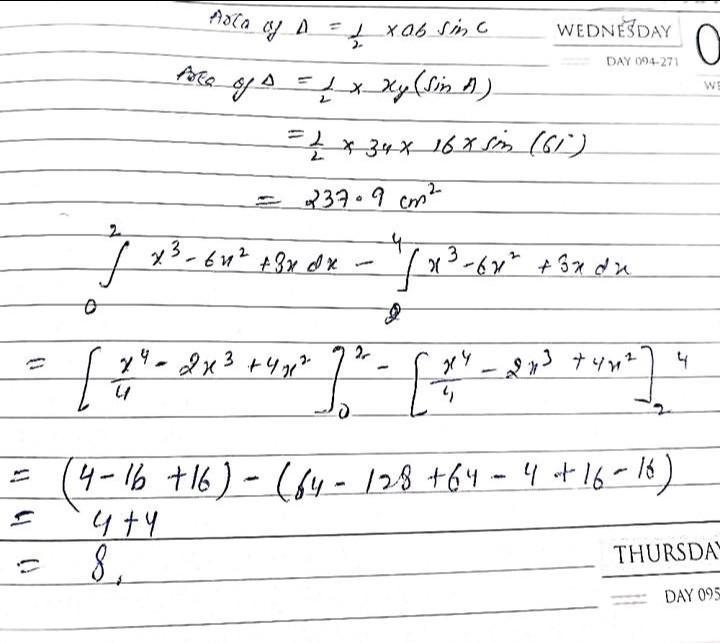 Area of Δ = 1/2 × ab sin C
WEDNESDAY
DAY 094-271
Area of Δ = 1/2 × xy (sin A)
= 1/2 × 34 × 16 × sin (61°)
= 237.9 cm²
∫₀² x³ - 6x² + 8x dx - ∫₂⁴ x³ - 6x² + 8x dx
= [x⁴/4 - 2x³ + 4x²]₀² - [x⁴/4 - 2x³ + 4x²]₂⁴
= (4 - 16 + 16) - (64 - 128 + 64 - 4 + 16 - 16)
= 4 + 4
= 8,
THURSDA
DAY 095